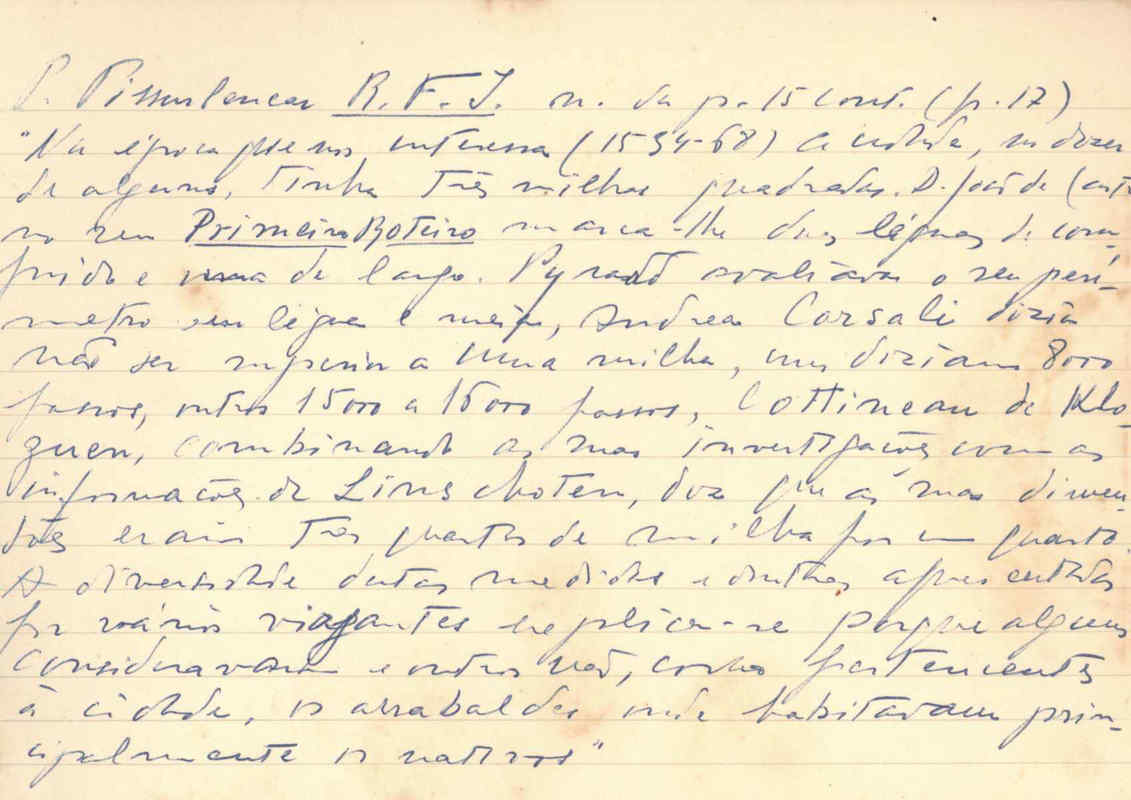 P. Pissurlencar R.F.J. n. da p. 15 cont. (p. 17)
"Na época que nos interessa (1534-68) a cidade, no dizer
de alguns, tinha três milhas quadradas. D. João de Castro
no seu Primeiro Roteiro marca-lhe duas léguas de com-
prido e uma de largo. Pyrard avaliava o seu perí-
metro em légua e meia, Andrea Corsali dizia
não ser superior a uma milha, uns diziam 8000
passos, outros 15000 a 16000 passos, Cottineau de Klo-
guen, combinando as suas investigações com as
informações de Linschoten, diz que as suas dimen-
sões eram três quartos de milha por um quarto.
A diversidade destas medidas e doutras apresentadas
por vários viajantes explica-se porque alguns
consideravam e outros não, como pertencentes
à cidade, os arrabaldes onde habitavam prin-
cipalmente os nativos"